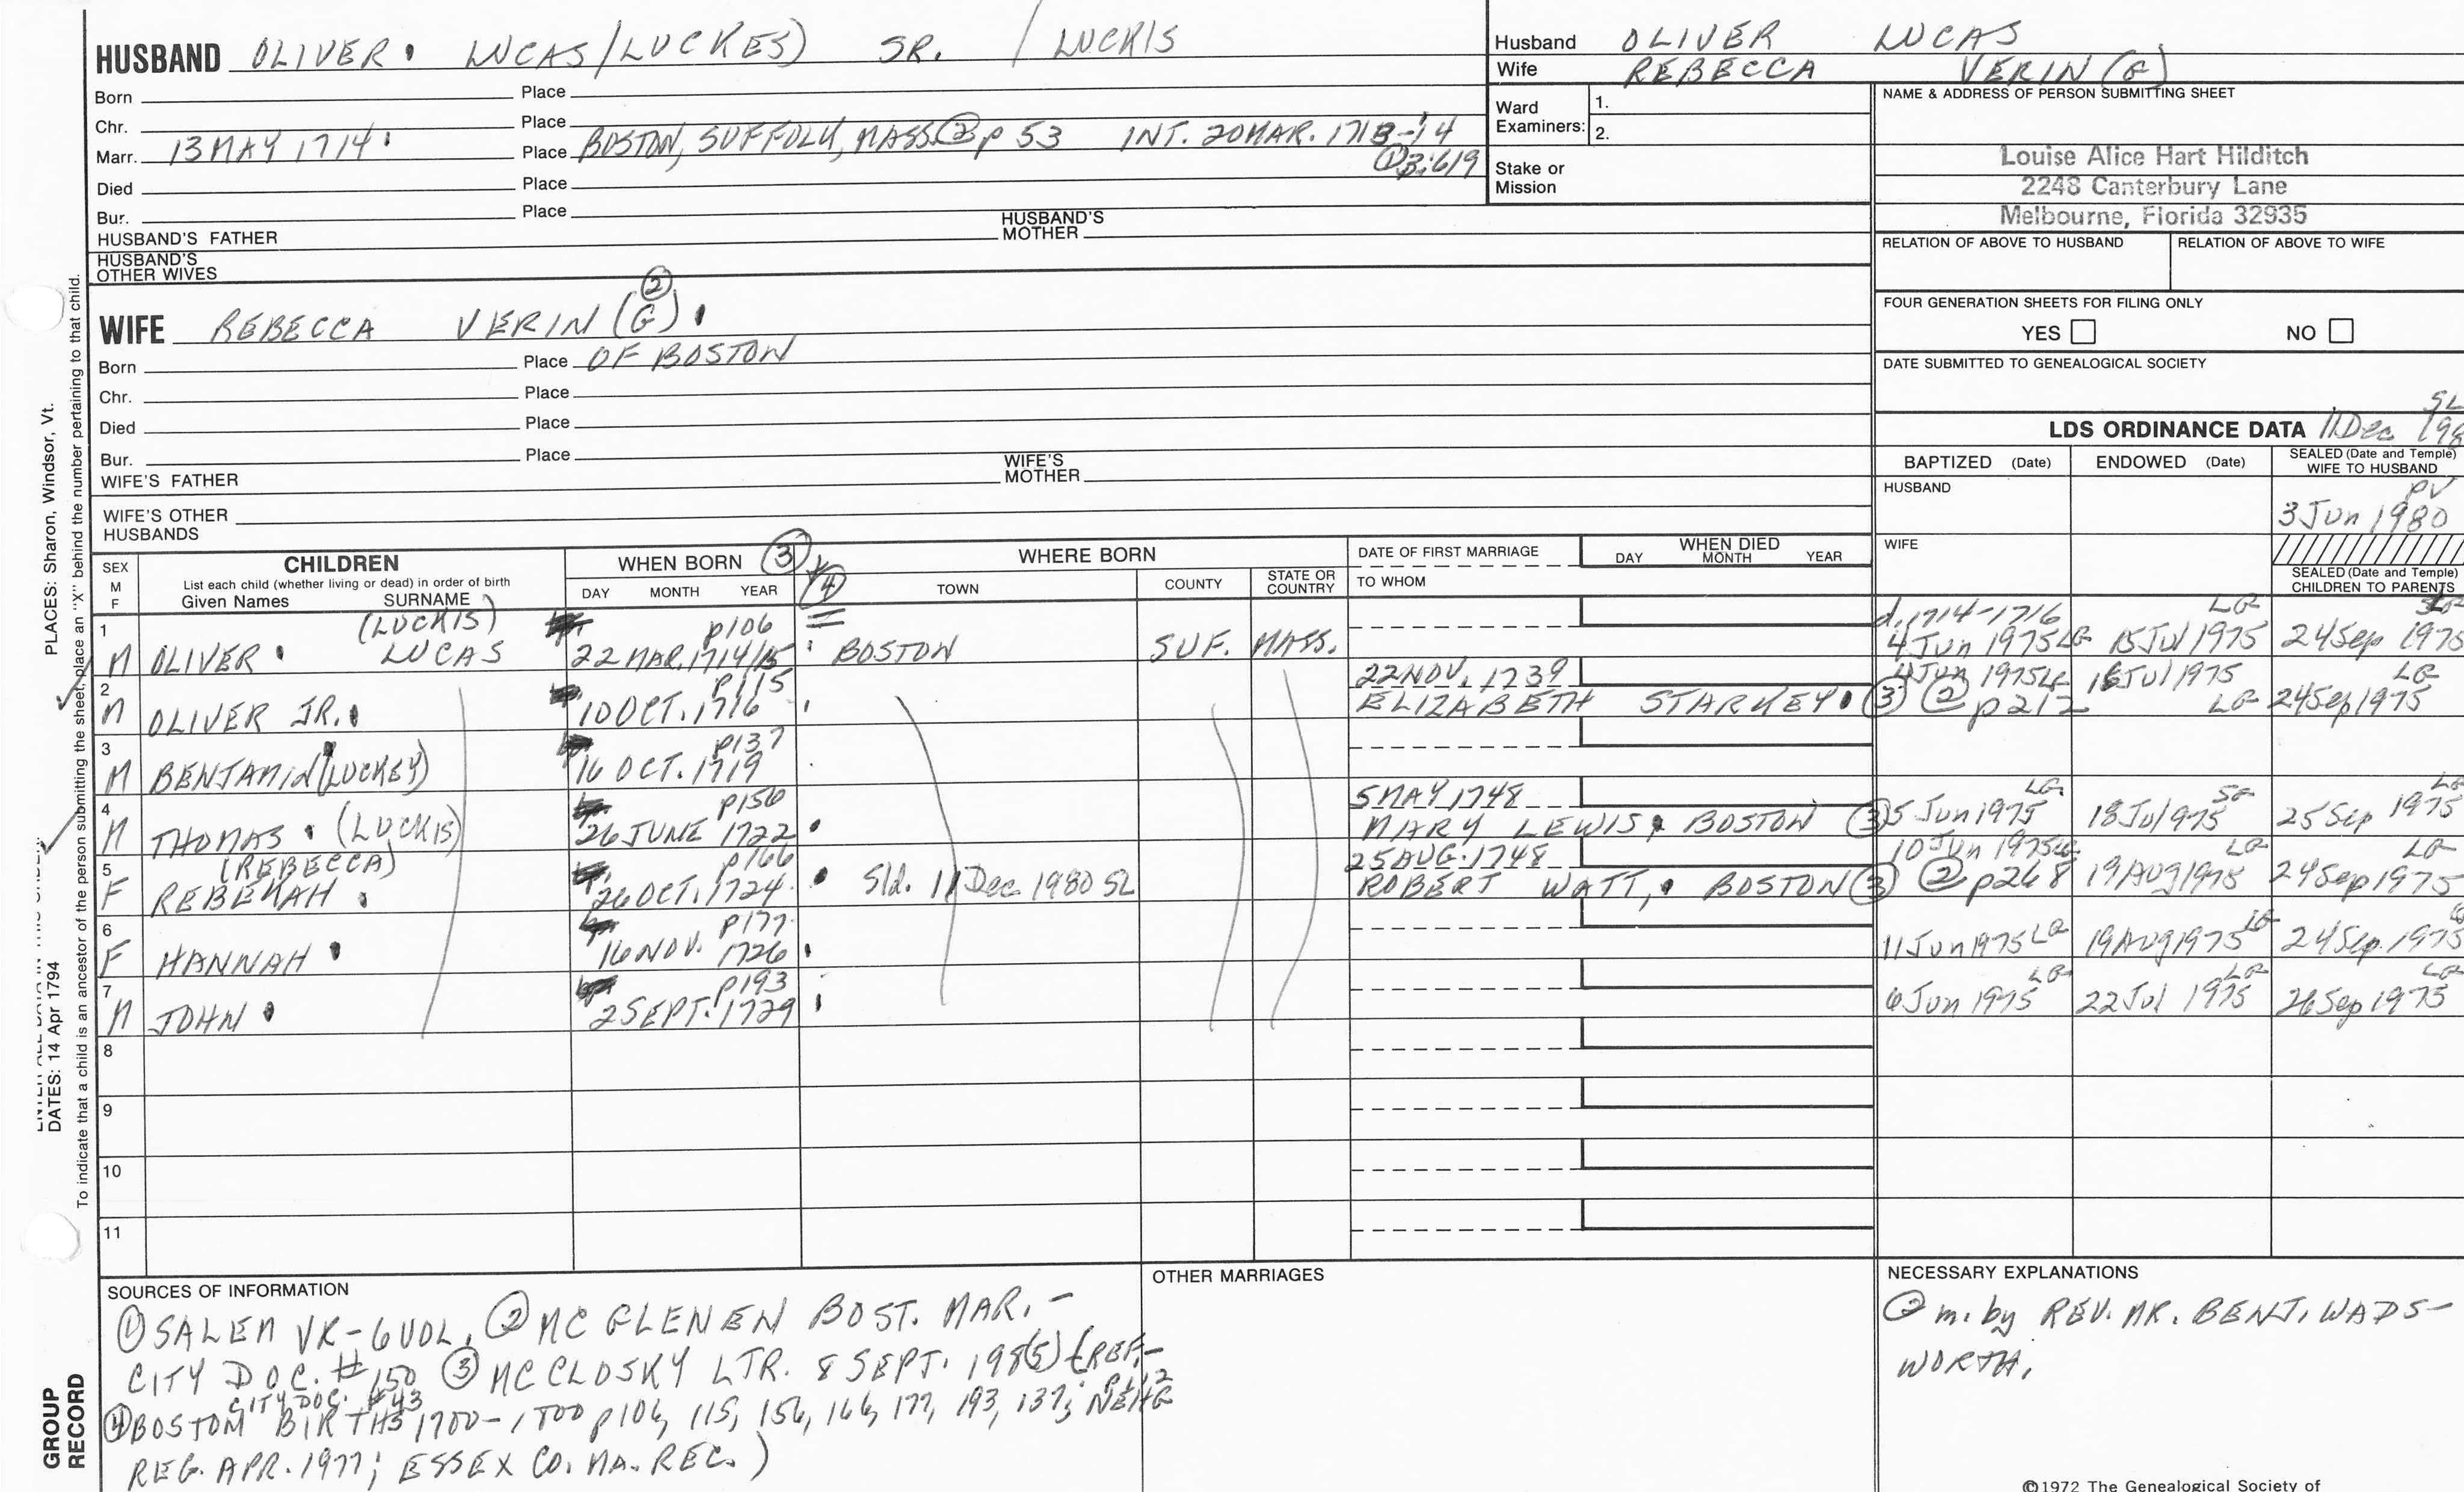 HUSBAND OLIVER. LUCAS/LUCKES) SR. / LUCKIS
Born Place
Chr. Place
Marr. 13 MAY 1714. Place BOSTON, SUFFOLK, MASS. ② p 53 INT. 20 MAR. 1713-14
① 3:619
Died Place
Bur. Place
HUSBAND'S FATHER HUSBAND'S MOTHER
HUSBAND'S OTHER WIVES
②
WIFE REBECCA VERIN (G).
Born Place OF BOSTON
Chr. Place
Died Place
Bur. Place
WIFE'S FATHER WIFE'S MOTHER
WIFE'S OTHER HUSBANDS
Husband OLIVER LUCAS
Wife REBECCA VERIN (G)
Ward Examiners: 1.
2.
Stake or Mission
NAME & ADDRESS OF PERSON SUBMITTING SHEET
Louise Alice Hart Hilditch
2248 Canterbury Lane
Melbourne, Florida 32935
RELATION OF ABOVE TO HUSBAND RELATION OF ABOVE TO WIFE
FOUR GENERATION SHEETS FOR FILING ONLY
YES NO
DATE SUBMITTED TO GENEALOGICAL SOCIETY
SL
LDS ORDINANCE DATA 11 Dec 198
BAPTIZED (Date) ENDOWED (Date) SEALED (Date and Temple) WIFE TO HUSBAND
HUSBAND PV
3 Jun 1980
WIFE
SEALED (Date and Temple) CHILDREN TO PARENTS
SEX M F
CHILDREN
List each child (whether living or dead) in order of birth
Given Names SURNAME
WHEN BORN ③
DAY MONTH YEAR ④
WHERE BORN
TOWN COUNTY STATE OR COUNTRY
DATE OF FIRST MARRIAGE
TO WHOM
WHEN DIED
DAY MONTH YEAR
1 (LUCKIS) p106 d. 1714-1716 LG
M OLIVER. LUCAS 22 MAR. 1714/15 BOSTON SUF. MASS. 4 Jun 1975 LG 15 Jul 1975 24 Sep 1975
2 p115 22 NOV. 1739 4 Jun 1975 LG 16 Jul 1975 LG
M OLIVER JR. 10 OCT. 1716 ELIZABETH STARKEY. ③ ② p212 LG 24 Sep 1975
3 p137
M BENJAMIN (LUCKEY) 16 OCT. 1719
4 p156 5 MAY 1748 LG SG LG
M THOMAS. (LUCKIS) 26 JUNE 1722. MARY LEWIS, BOSTON ③ 5 Jun 1975 18 Jul 1975 25 Sep 1975
5 (REBECCA) p166 25 AUG. 1748 10 Jun 1975 LG LG LG
F REBEKAH. 26 OCT. 1724. Sld. 11 Dec 1980 SL ROBERT WATT, BOSTON ③ ② p268 19 Aug 1975 24 Sep 1975
6 p177
F HANNAH. 16 NOV. 1726 11 Jun 1975 LG 19 Aug 1975 LG 24 Sep 1975
7 p193 LG LG LG
M JOHN. 2 SEPT. 1729 6 Jun 1975 22 Jul 1975 26 Sep 1975
8
9
10
11
SOURCES OF INFORMATION
① SALEM VR-6 VOL, ② MC GLENEN BOST. MAR. -
CITY DOC. #150 ③ MC CLOSKY LTR. 8 SEPT. 198(5) (REF.-
CITY DOC. #43 p 112
④ BOSTON BIRTHS 1700-1800 p106, 115, 156, 166, 177, 193, 137; NEHG
REG. APR. 1977; ESSEX CO. MA. REC.)
OTHER MARRIAGES
NECESSARY EXPLANATIONS
② m. by REV. MR. BENJ. WADS-
WORTH.
©1972 The Genealogical Society of
PLACES: Sharon, Windsor, Vt.
DATES: 14 Apr 1794
To indicate that a child is an ancestor of the person submitting the sheet, place an "X" behind the number pertaining to that child.
GROUP
RECORD